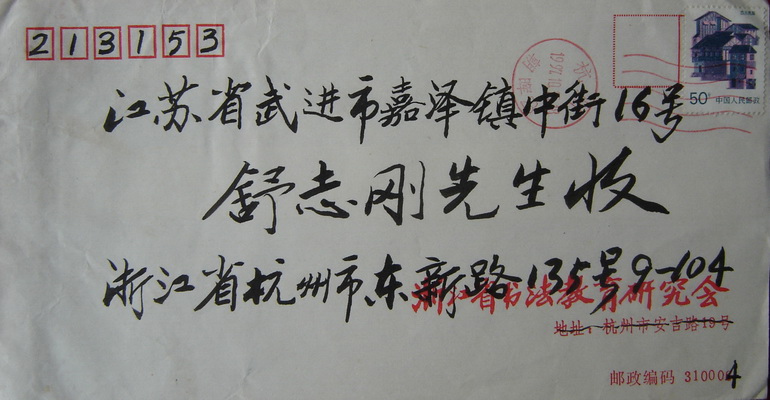 213153
50分 中国人民邮政
江苏省武进市嘉泽镇中街16号
舒志刚先生收
浙江省杭州市东新路135号9-104
浙江省书法教育研究会
地址:杭州市安吉路19号
邮政编码 310004